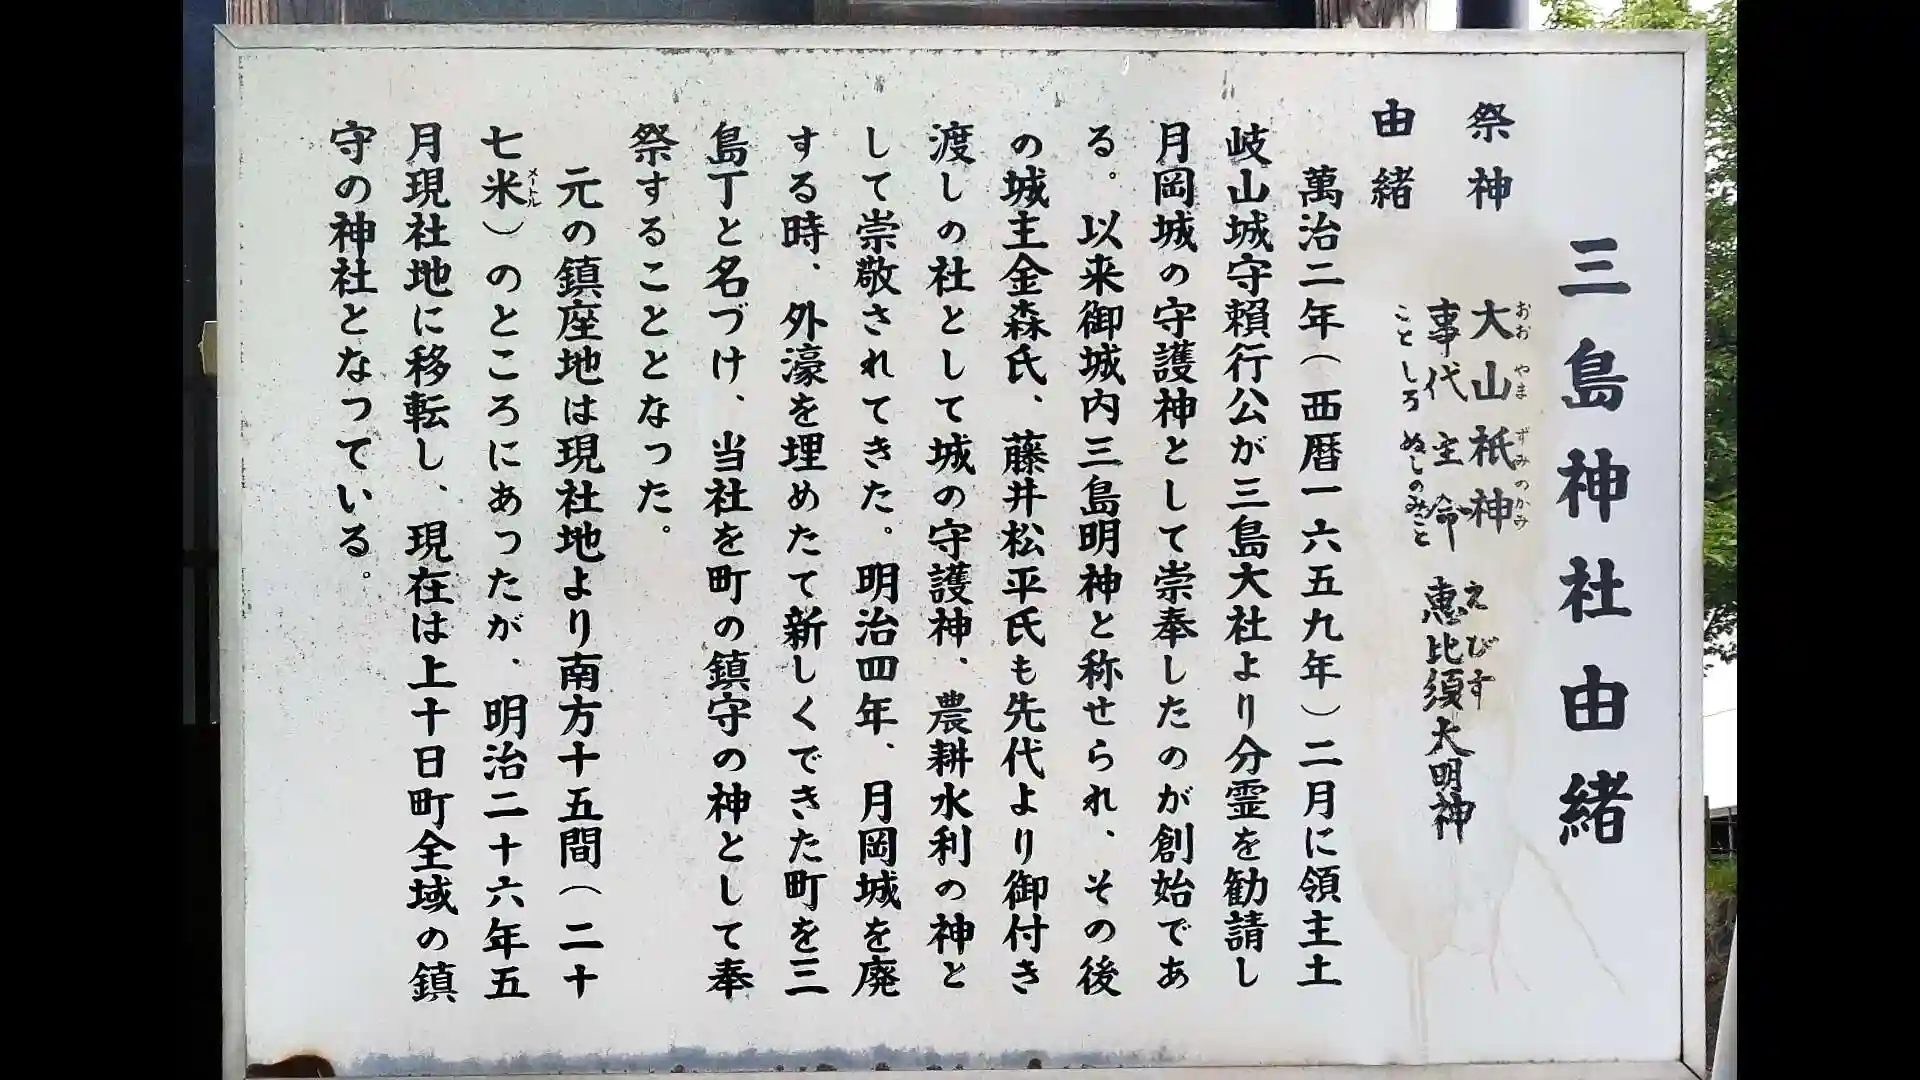 三島神社由緒
祭神
大山祇神
おお やま ずみのかみ
事代主命 恵比須大明神
ことしろ ぬしのみこと えびす
由緒
萬治二年(西暦一六五九年)二月に領主土
岐山城守頼行公が三島大社より分霊を勧請し
月岡城の守護神として崇奉したのが創始であ
る。以来御城内三島明神と称せられ、その後
の城主金森氏、藤井松平氏も先代より御付き
渡しの社として城の守護神、農耕水利の神と
して崇敬されてきた。明治四年、月岡城を廃
する時、外濠を埋めたて新しくできた町を三
島丁と名づけ、当社を町の鎮守の神として奉
祭することとなった。
元の鎮座地は現社地より南方十五間(二十
七米)のところにあったが、明治二十六年五
メートル
月現社地に移転し、現在は上十日町全域の鎮
守の神社となっている。